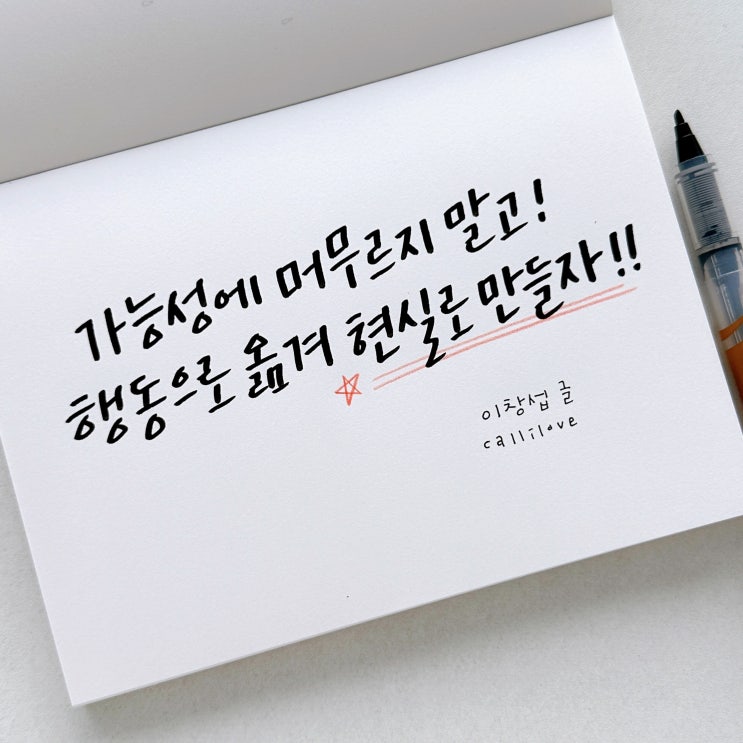 가능성에 머무르지 말고!
행동으로 옮겨 현실로 만들자!!
이창섭 글
callilove